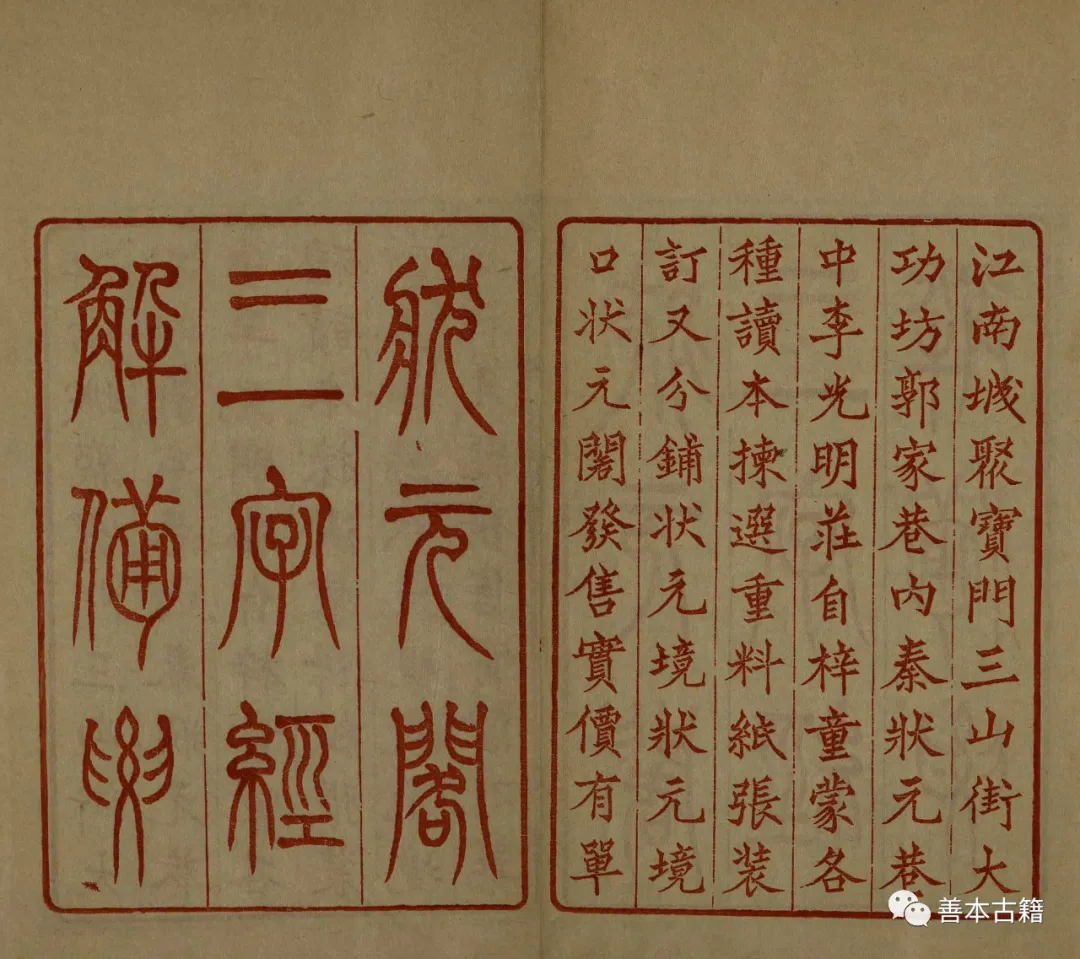 江南城聚寶門三山街大
功坊郭家巷內秦狀元巷
中李光明莊自梓童蒙各
種讀本揀選重料紙張裝
訂又分鋪状元境狀元境
口状元閣發售實價有單
狀元閣
三字經
解備要
善本古籍